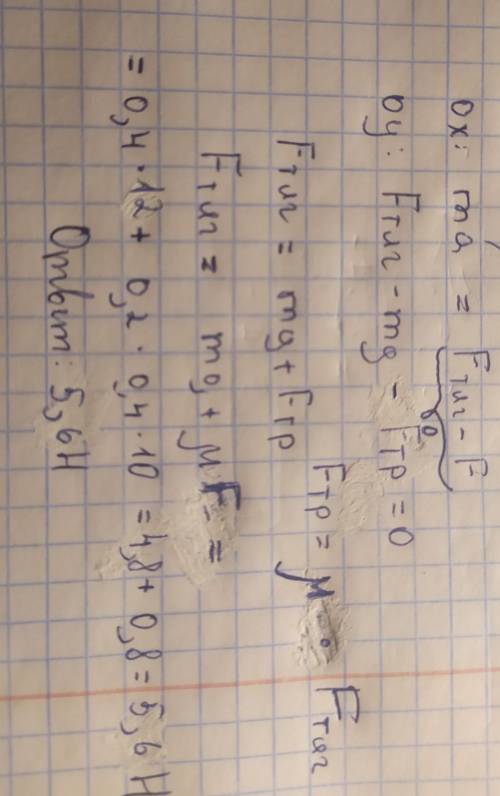 ox: ma = Fтяг - F
0
oy: Fтяг - mg - Fтр = 0
Fтр = μ · Fтяг
Fтяг = mg + Fтр
Fтяг = mg + μF =
= 0,4·12 + 0,2·0,4·10 = 4,8 + 0,8 = 5,6 Н
Ответ: 5,6Н